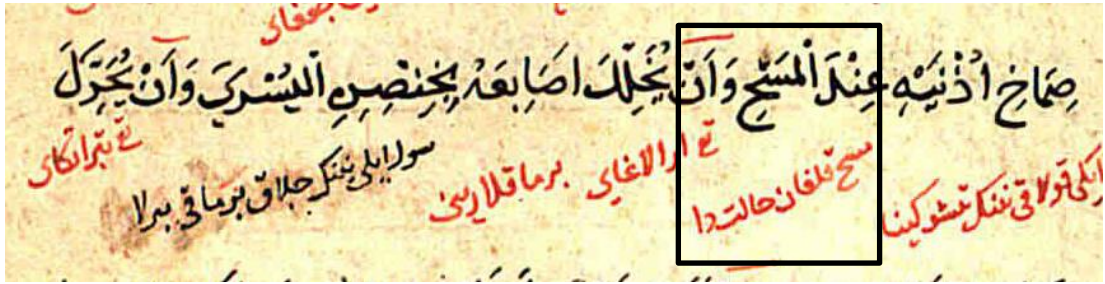 صِمَاخِ اُذْنَيْهِ عِنْدَ الْمَسْحِ وَاَنْ يُخَلِّلَ اَصَابِعَهُ بِخِنْصِرِهِ الْيُسْرَي وَاَنْ يُحَرِّكَ
ايكى قولاقى ننك تشوكينا مسح قلغان حالت دا تقى ارالاغاى برماقلارينى سول ايلى ننك جلاق برماقى برلا تقى تبراتكاى